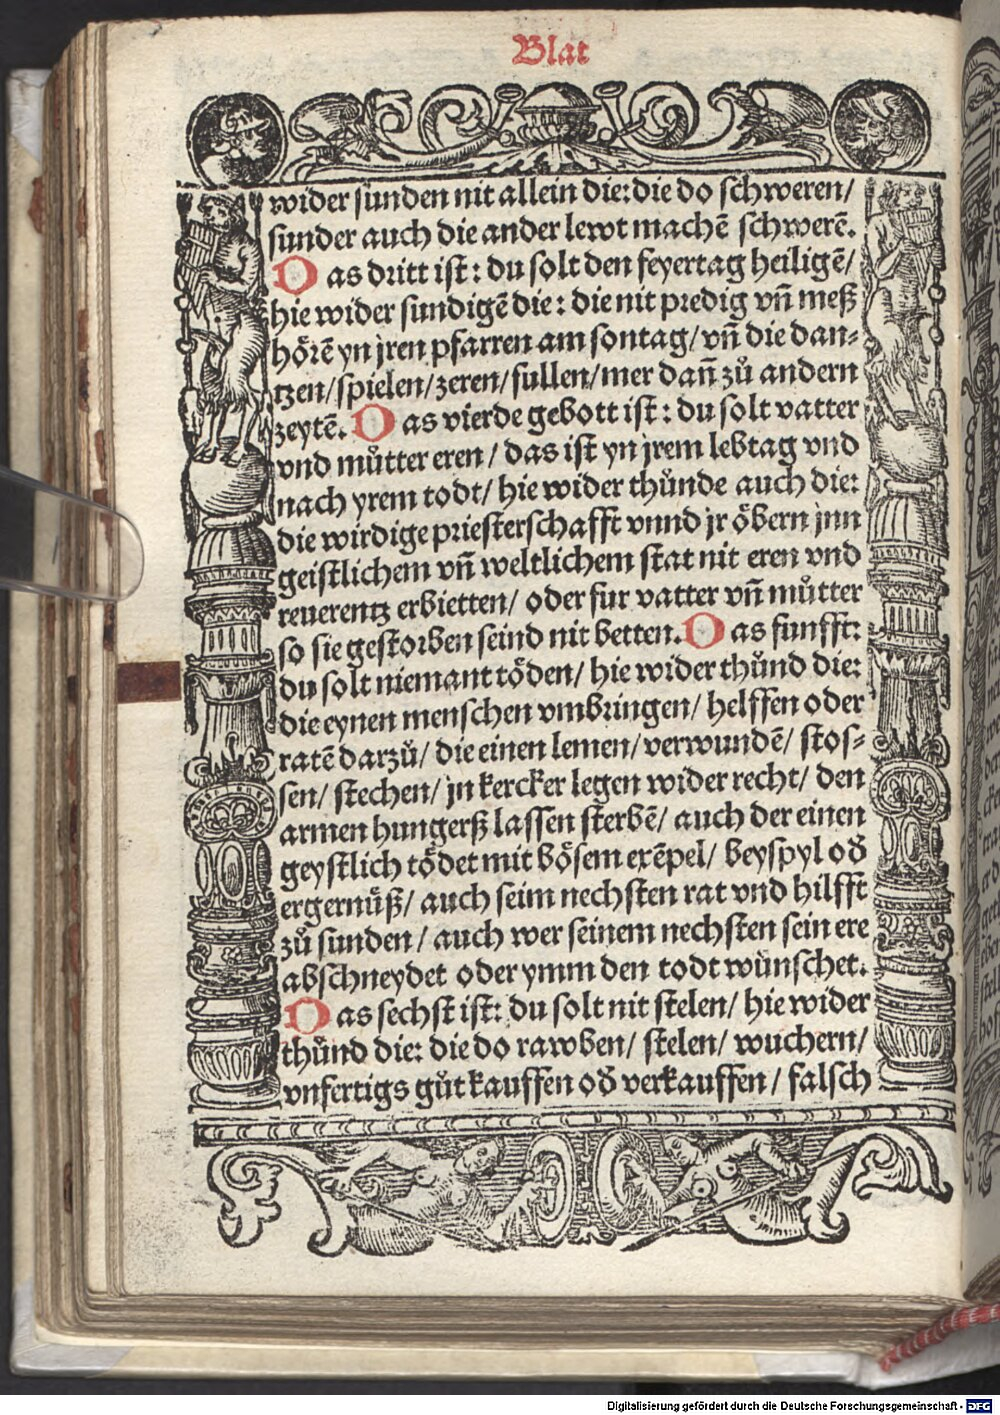 Blat
wider sunden nit allein die: die do schweren/
sunder auch die ander lewt machē schwerē.
Das dritt ist: du solt den feyertag heiligē/
hie wider sundigē die: die nit predig vn̄ meß
hörē yn jren pfarren am sontag/ vn̄ die dan⸗
tzen/ spielen/ zeren/ fullen/ mer dan̄ zů andern
zeytē. Das vierde gebott ist: du solt vatter
vnd můtter eren/ das ist yn jrem lebtag vnd
nach yrem todt/ hie wider thůnde auch die:
die wirdige priesterschafft vnnd jr öbern jnn
geistlichem vn̄ weltlichem stat nit eren vnd
reuerentz erbietten/ oder fur vatter vn̄ můtter
so sie gestorben seind nit betten. Das funfft:
du solt niemant töden/ hie wider thůnd die:
die eynen menschen vmbringen/ helffen oder
ratē darzů/ die einen lemen/ verwundē/ stos⸗
sen/ stechen/ jn kercker legen wider recht/ den
armen hungerß lassen sterbē/ auch der einen
geystlich tödet mit bösem exēpel/ beyspyl od̄
ergernüß/ auch seim nechsten rat vnd hilfft
zů sunden/ auch wer seinem nechsten sein ere
abschneydet oder ymm den todt wünschet.
Das sechst ist: du solt nit stelen/ hie wider
thůnd die: die do rawben/ stelen/ wuchern/
vnfertigs gůt kauffen od̄ verkauffen/ falsch
Digitalisierung gefördert durch die Deutsche Forschungsgemeinschaft - DFG